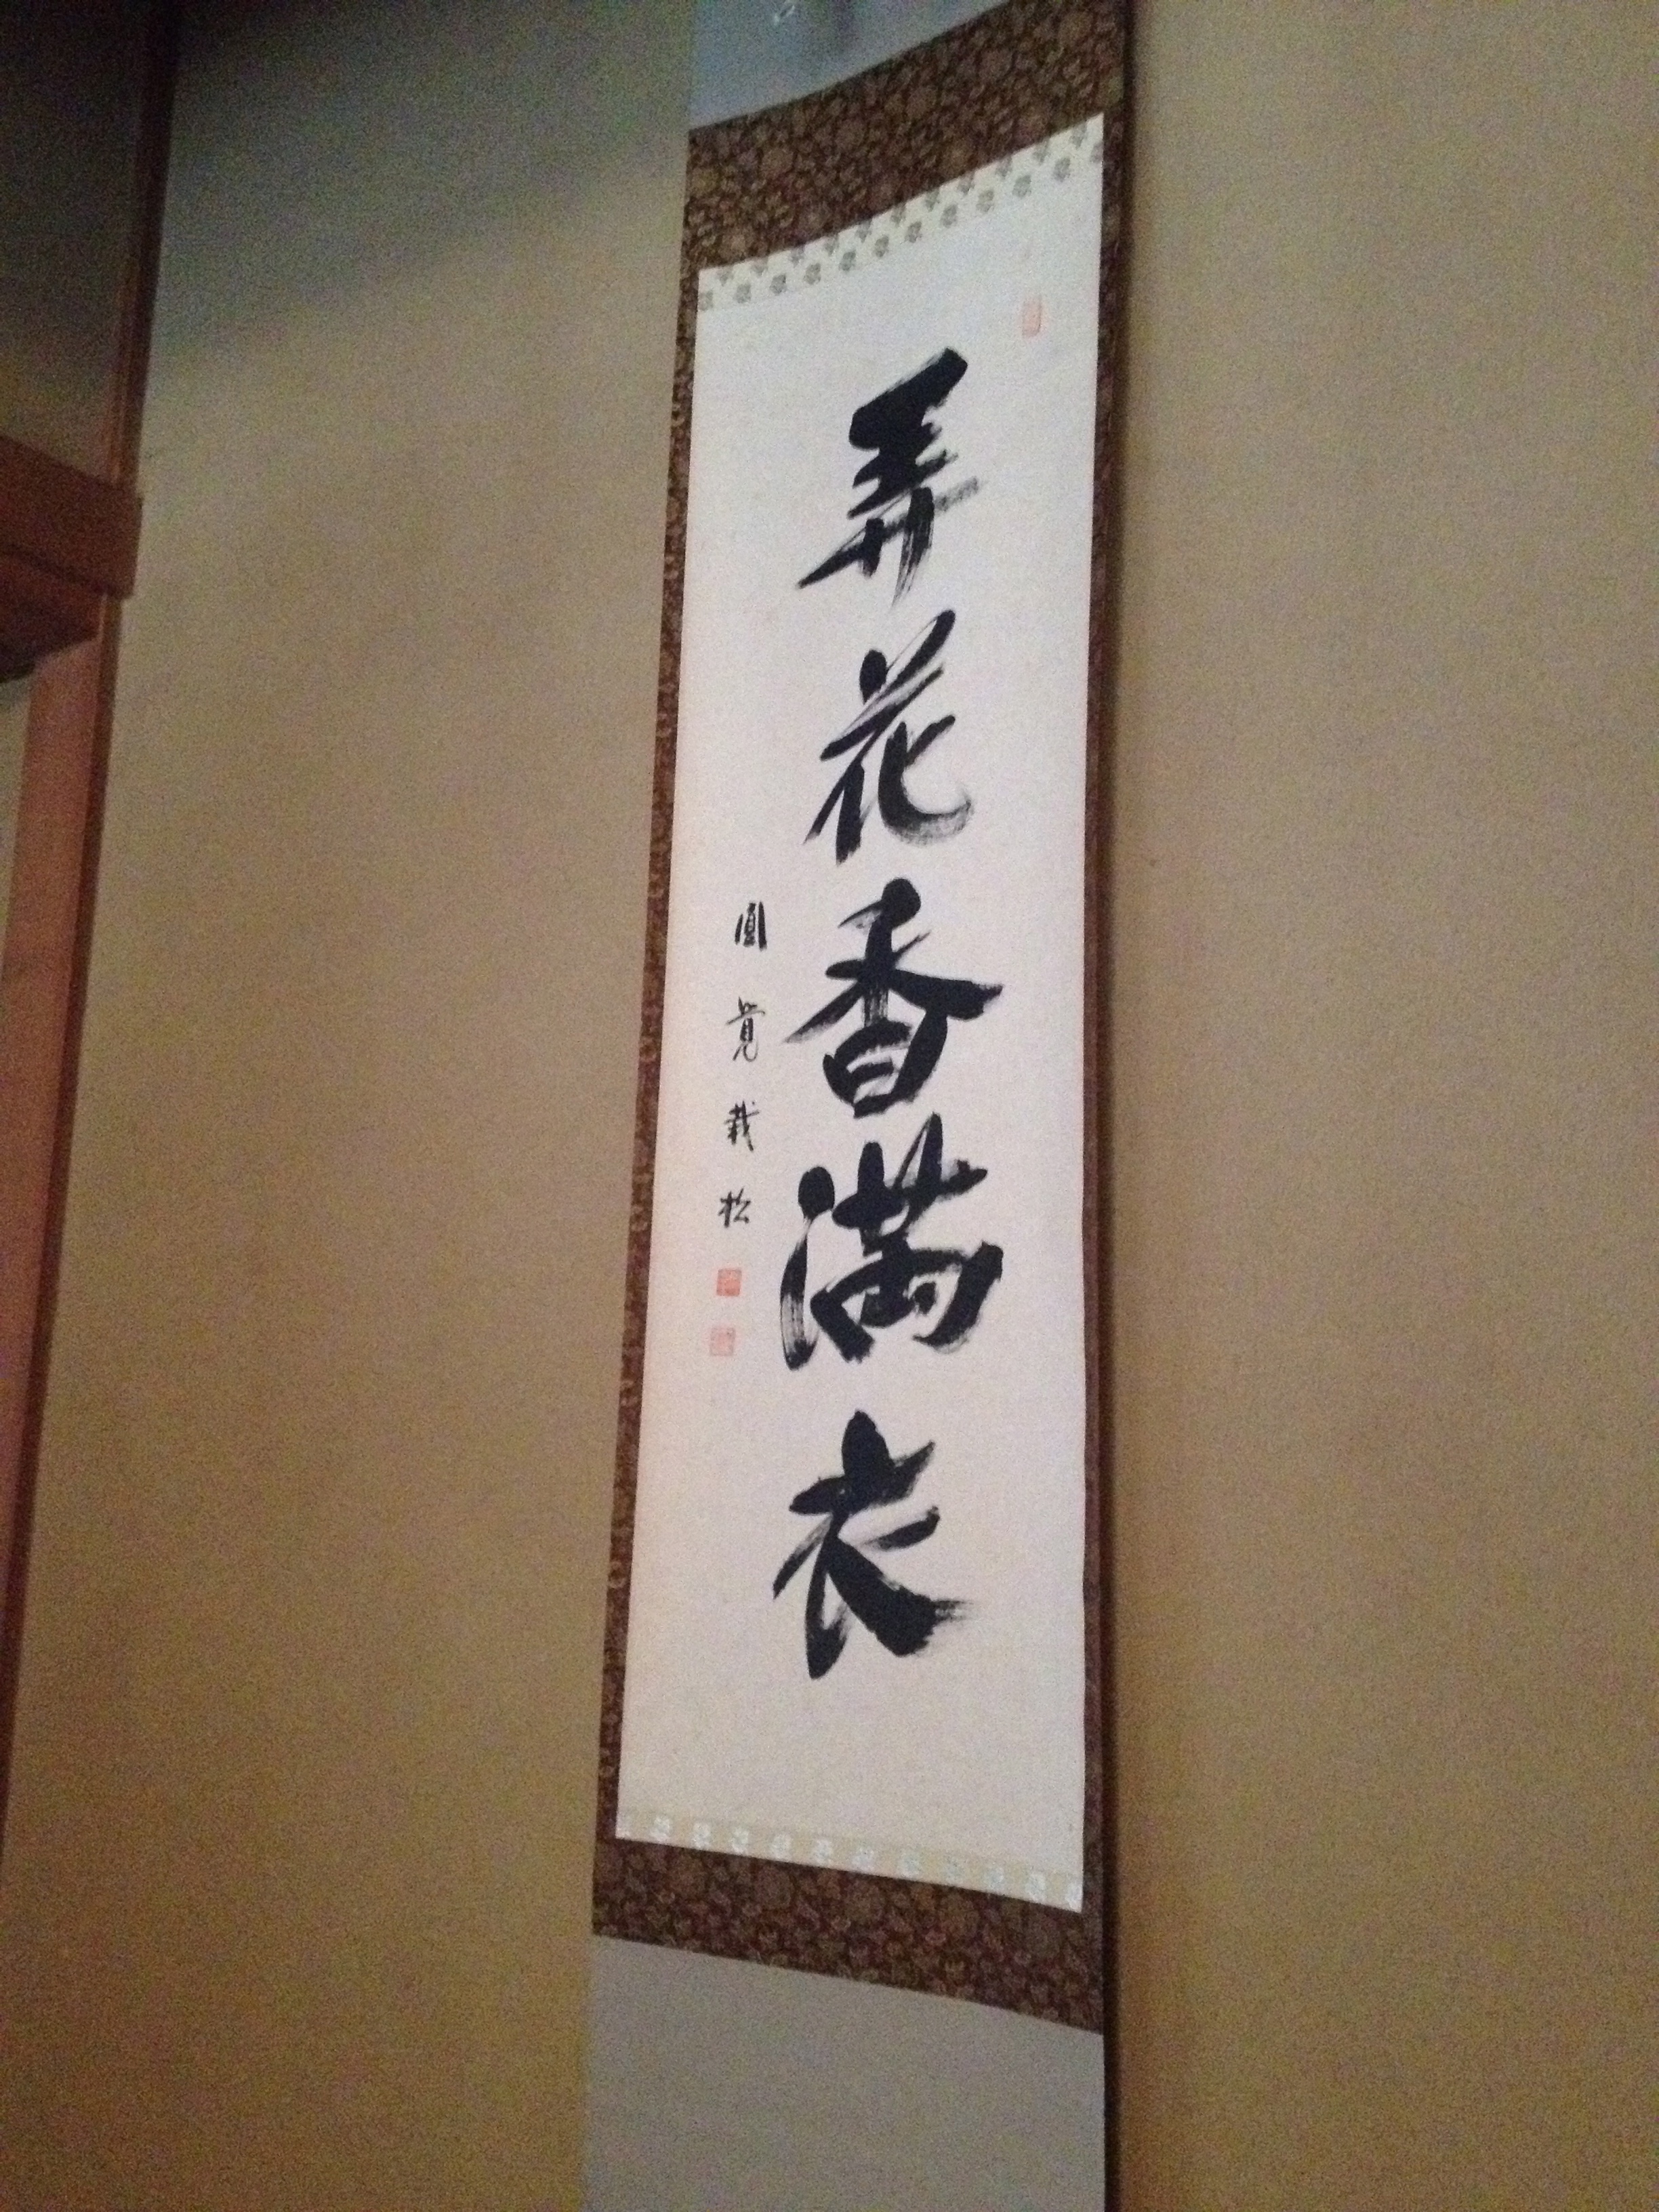 弄花香満衣
圓覚栽松